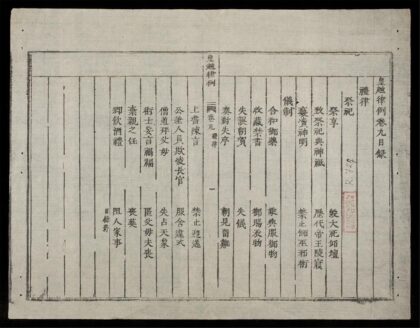 皇越律例卷九目錄
禮律
祭祀
祭享 毀大祀邱壇
致祭祀典神祇 歷代帝王陵寢
褻瀆神明 禁止師巫邪術
儀制
合和御藥 乘輿服御物
收藏禁書 御賜衣物
失誤朝賀 失儀
奏對失序 朝見留難
皇越律例 卷九 禮律 一
上書陳言 禁止迎送
公差人員欺凌長官 服舍違式
僧道拜父母 失占天象
術士妄言禍福 匿父母夫喪
棄親之任 喪葬
鄉飲酒禮
目錄終